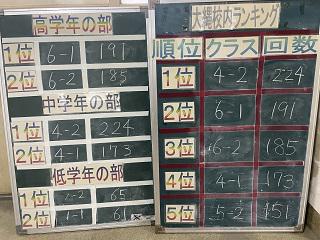 高学年の部
1位 6-1 191
2位 6-2 185
中学年の部
1位 4-2 224
2位 4-1 173
低学年の部
1位 2-2 65
2位 1-1 61
大縄校内ランキング
順位 クラス 回数
1位 4-2 224
2位 6-1 191
3位 6-2 185
4位 4-1 173
5位 5-2 151